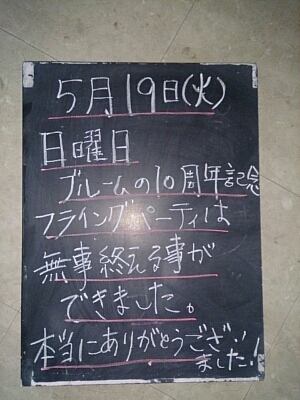 5月19日(火)
日曜日
ブルームの10周年記念
フライングパーティは
無事終える事が
できました。
本当にありがとうござい
ました!!